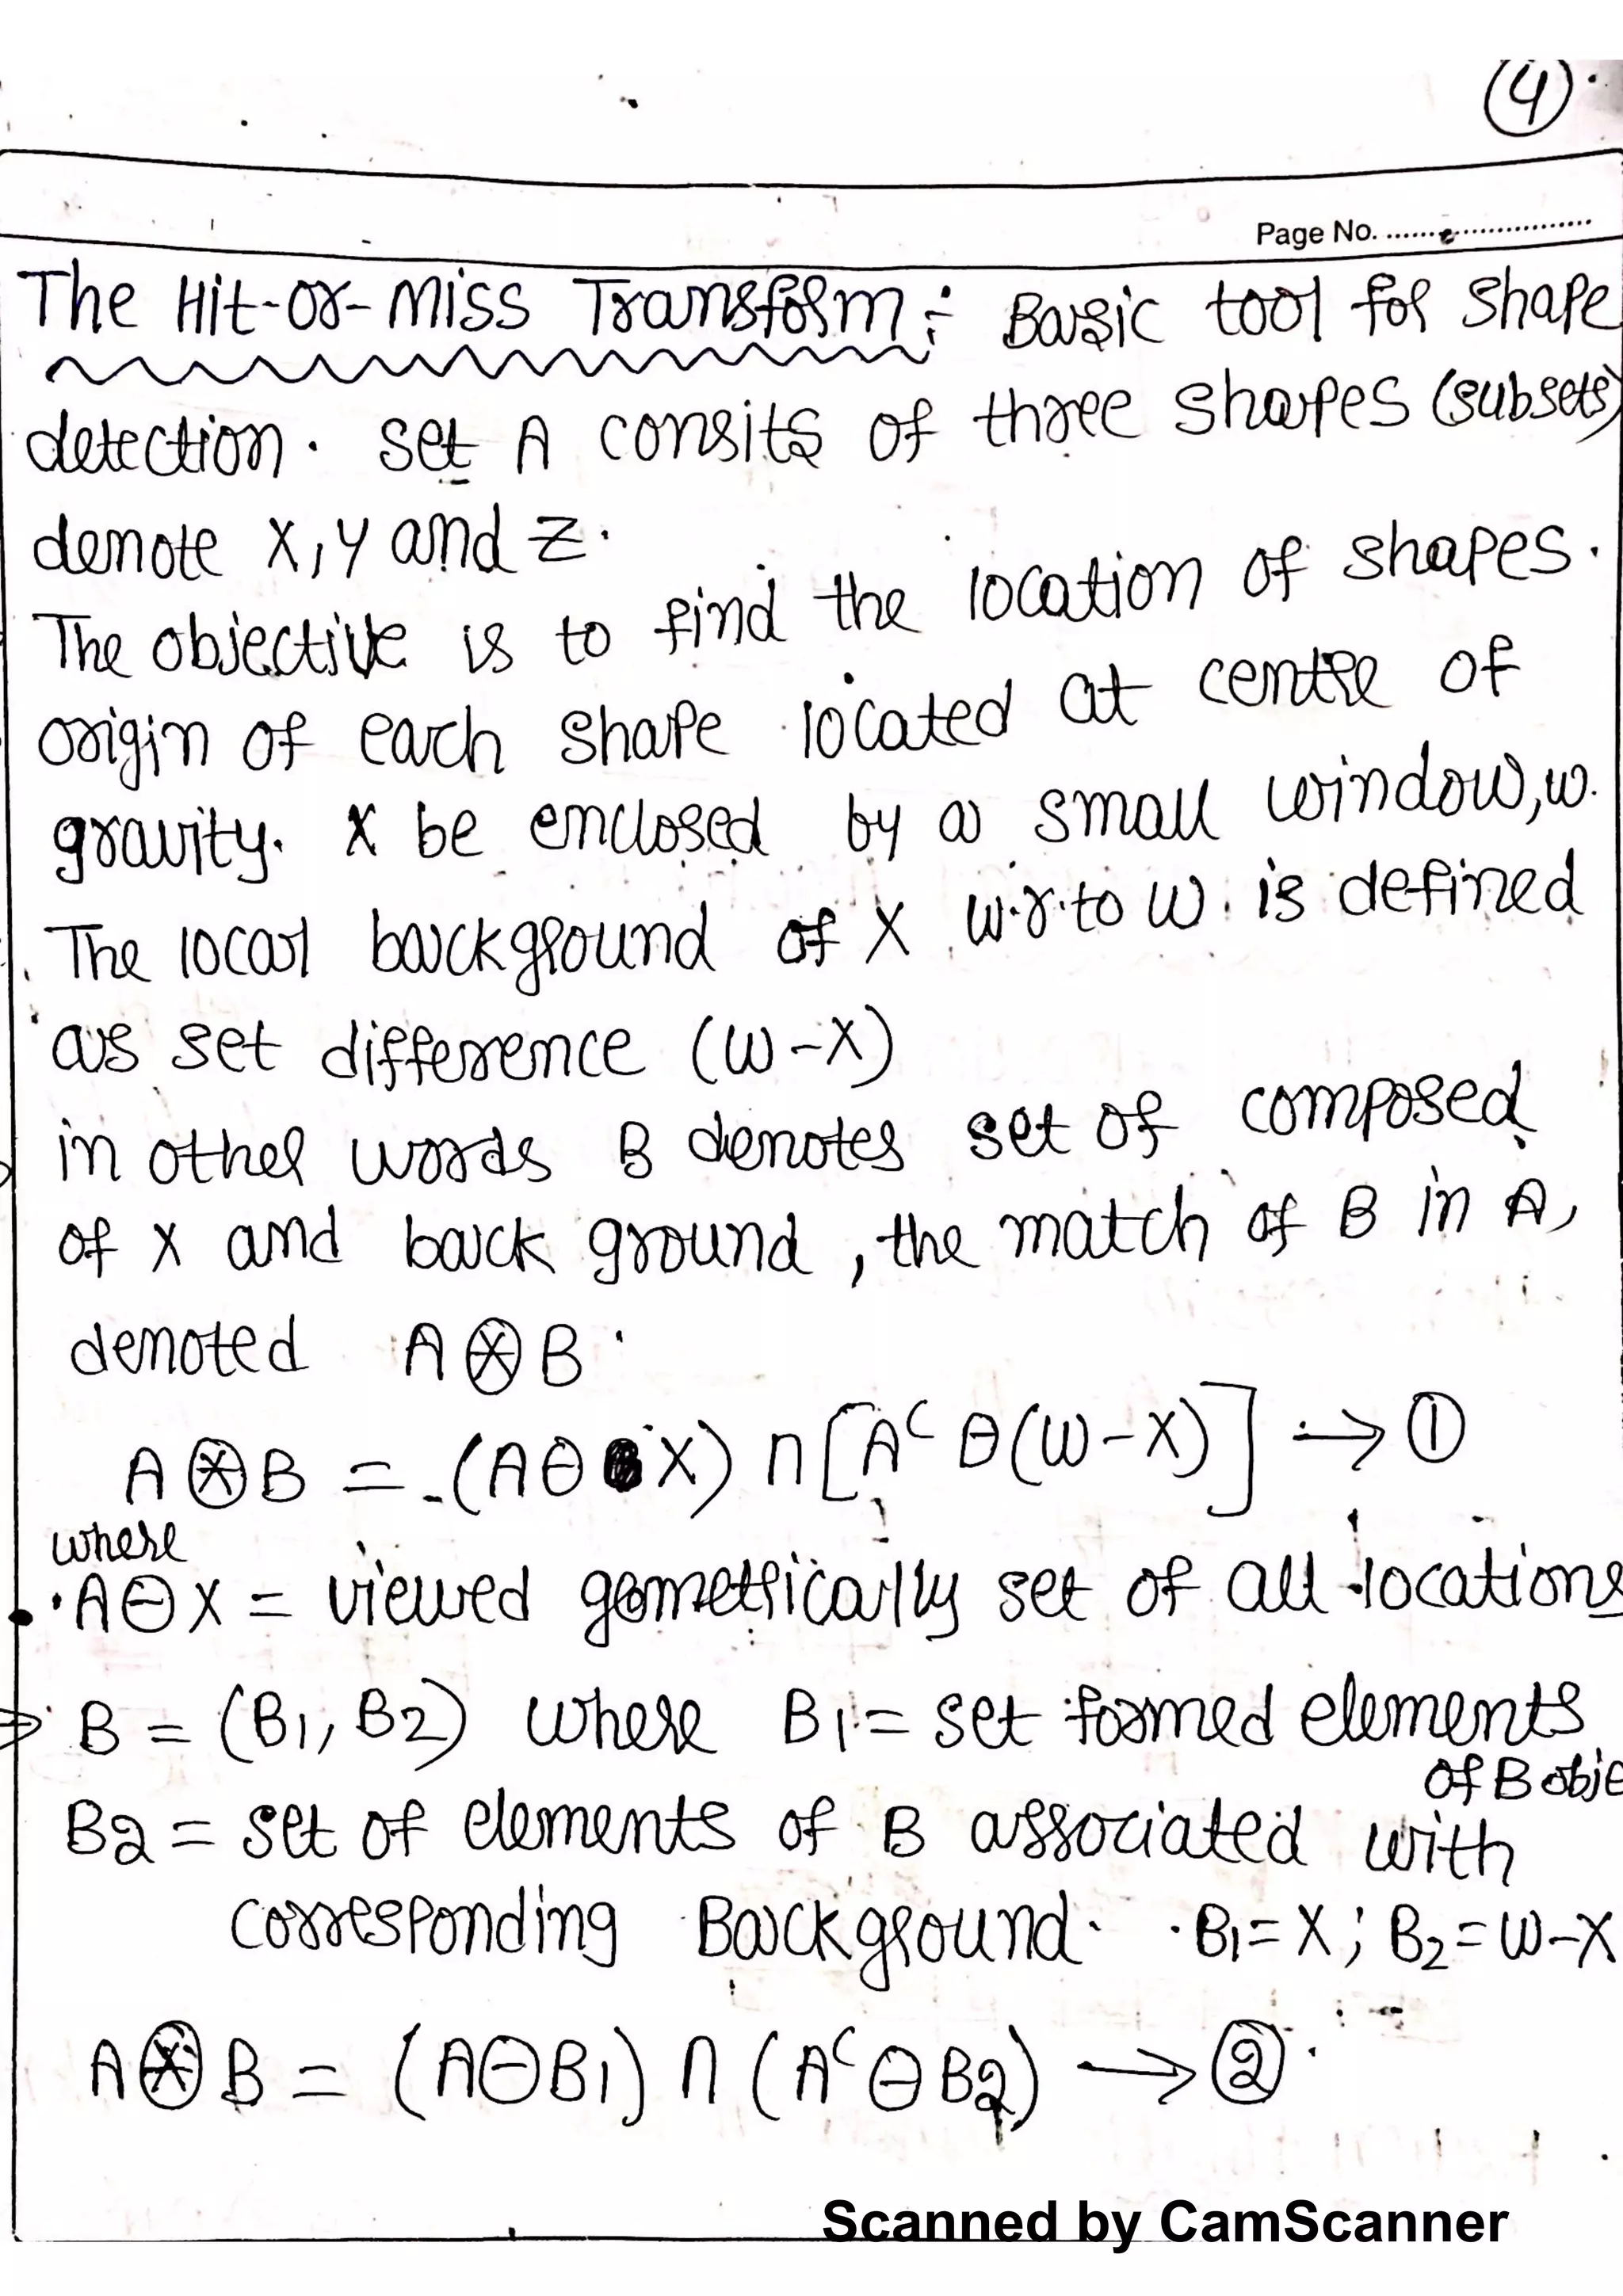 4
Page No. ..............................
The Hit-or-Miss Transform:- Basic tool for shape
detection. set A consits of three shapes (subsets)
denote X, Y and Z.
The objective is to find the location of shapes.
origin of each shape located at centre of
gravity. X be enclosed by a small window, w.
The local background of X w.r.to W. is defined
as set difference (W-X)
in other words B denotes set of composed
of X and back ground, the match of B in A,
denoted A ⊛ B.
A ⊛ B = (A ⊖ X) ∩ [Aᶜ ⊖ (W-X)] → ①
where
• A ⊖ X = viewed geometrically set of all locations
⇒ B = (B1, B2) where B1 = set formed elements
of B obje
B2 = set of elements of B associated with
corresponding Background. B1 = X; B2 = W-X
A ⊛ B = (A ⊖ B1) ∩ (Aᶜ ⊖ B2) → ②
Scanned by CamScanner